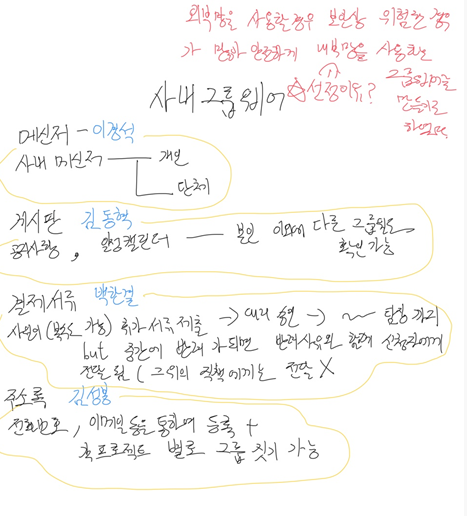 외부망을 사용할 경우 보안상 위험한 경우
가 많아 안전하게 내부망을 사용하는
그룹웨어를
만들기로
하였으며
사내 그룹웨어 ☆선정이유?
메신저 - 이경석
사내 메신저 개인
단체
게시판 김동혁
공지사항, 일정캘린더 본인 이외에 다른 그룹원도
확인 가능
결제서류 백한결
사원의 (복수 가능) 휴가서류 제출 → 대리 승인 → ~ 팀장까지
but 중간에 반려가 되면 반려사유와 함께 신청자에게
전달 됨 ( 그 위의 직책에게는 전달 X
주소록
전화번호, 이메일 등을 통하여 등록 +
각 프로젝트 별로 그룹 짓기 가능